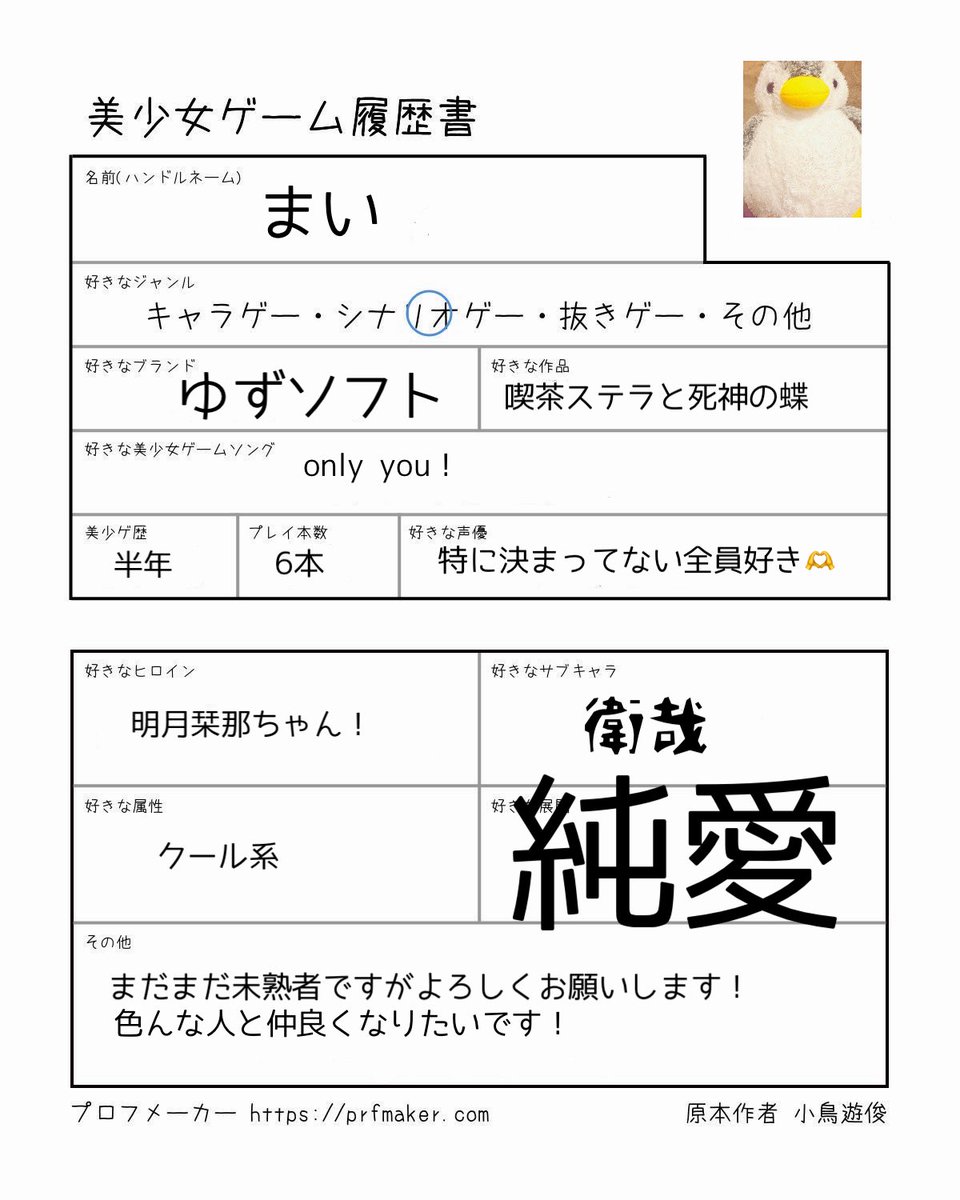 美少女ゲーム履歴書
名前(ハンドルネーム)
まい
好きなジャンル
キャラゲー・シナリオゲー・抜きゲー・その他
好きなブランド
ゆずソフト
好きな作品
喫茶ステラと死神の蝶
好きな美少女ゲームソング
only you！
美少ゲ歴
半年
プレイ本数
6本
好きな声優
特に決まってない全員好き🫶
好きなヒロイン
明月栞那ちゃん！
好きなサブキャラ
衛哉
好きな属性
クール系
好きな展開
純愛
その他
まだまだ未熟者ですがよろしくお願いします！
色んな人と仲良くなりたいです！
プロフメーカー https://prfmaker.com
原本作者 小鳥遊俊